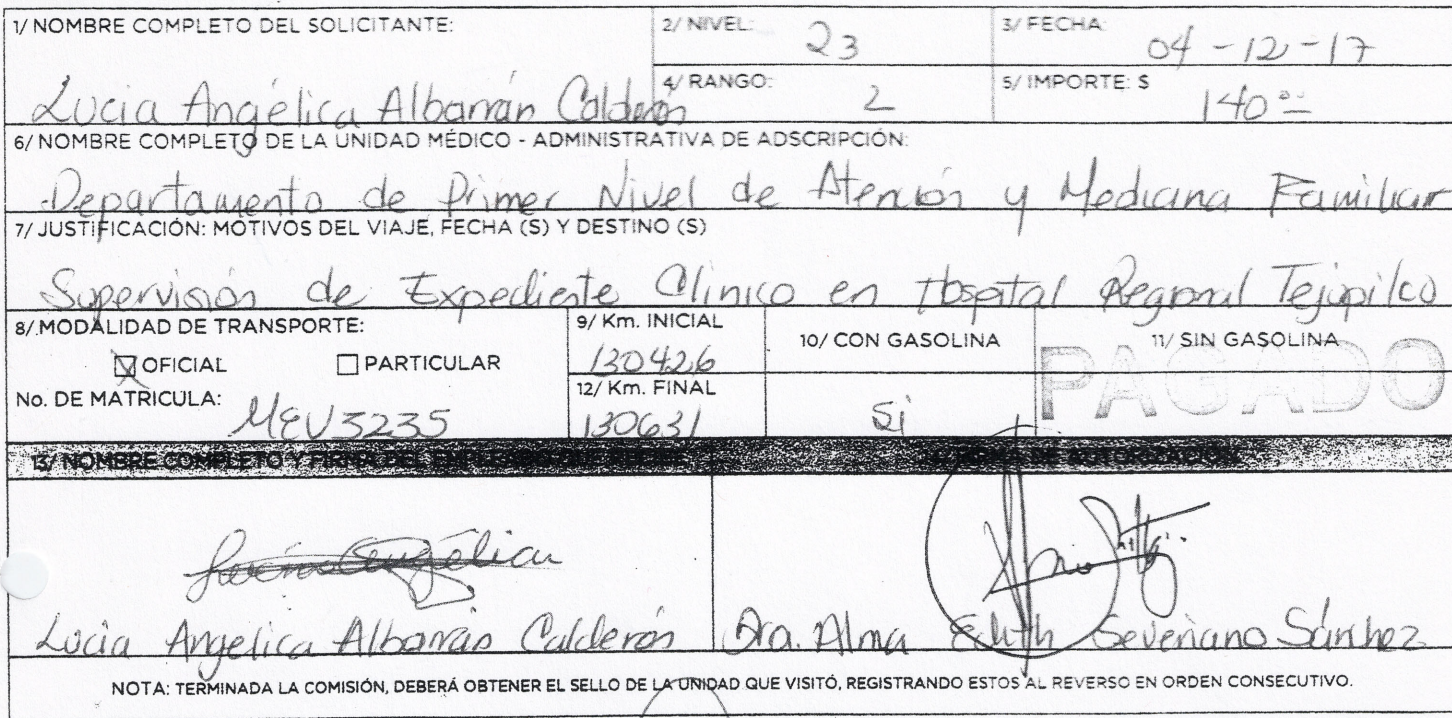 1/ NOMBRE COMPLETO DEL SOLICITANTE:
Lucia Angélica Albarrán Calderón
2/ NIVEL: 23
3/ FECHA: 04-12-17
4/ RANGO: 2
5/ IMPORTE: $ 140 00
6/ NOMBRE COMPLETO DE LA UNIDAD MÉDICO - ADMINISTRATIVA DE ADSCRIPCIÓN:
Departamento de Primer Nivel de Atención y Medicina Familiar
7/ JUSTIFICACIÓN: MOTIVOS DEL VIAJE, FECHA (S) Y DESTINO (S)
Supervisión de Expediente Clinico en Hospital Regional Tejupilco
8/ MODALIDAD DE TRANSPORTE:
OFICIAL PARTICULAR
No. DE MATRICULA: MEV3235
9/ Km. INICIAL
130426
12/ Km. FINAL
130631
10/ CON GASOLINA
Si
11/ SIN GASOLINA
PAGADO
13/ NOMBRE COMPLETO Y FIRMA DEL EMPLEADO QUE
FIRMA DE AUTORIZACIÓN
Lucía Angélica
Lucia Angelica Albarrán Calderón
Dra. Alma Edith Severiano Sánchez
NOTA: TERMINADA LA COMISIÓN, DEBERÁ OBTENER EL SELLO DE LA UNIDAD QUE VISITÓ, REGISTRANDO ESTOS AL REVERSO EN ORDEN CONSECUTIVO.